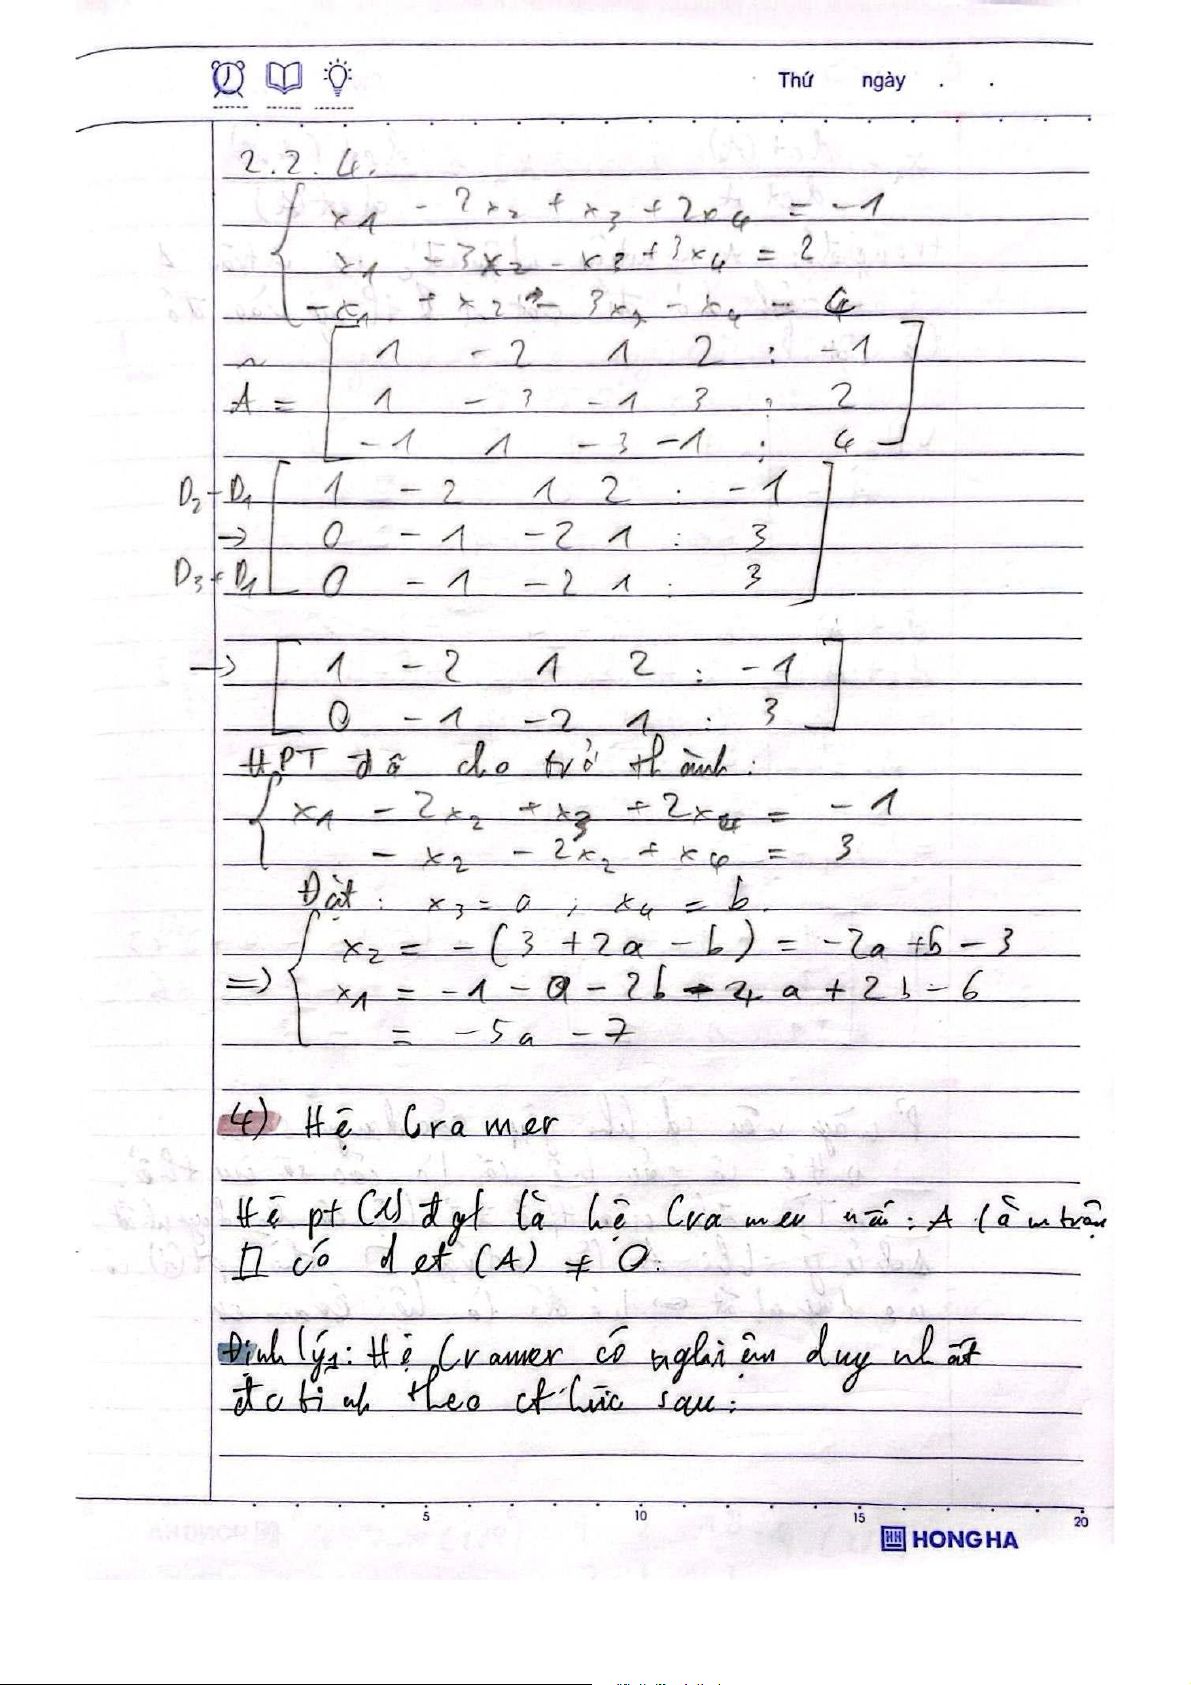 Thứ ngày . .
2.2.4.
x1 - 2x2 + x3 + 2x4 = -1
x1 - 3x2 - x3 + 3x4 = 2
-x1 + x2 - 3x3 - x4 = 4
~
A = [ 1 -2 1 2 : -1
1 -3 -1 3 : 2
-1 1 -3 -1 : 4 ]
D2 - D1 [ 1 -2 1 2 : -1
→ 0 -1 -2 1 : 3
D3 + D1 0 -1 -2 1 : 3 ]
→ [ 1 -2 1 2 : -1
0 -1 -2 1 : 3 ]
HPT đã cho trở thành:
x1 - 2x2 + x3 + 2x4 = -1
- x2 - 2x2 + x4 = 3
Đặt: x3 = a ; x4 = b.
x2 = -(3 + 2a - b) = -2a + b - 3
=> x1 = -1 - a - 2b - 4a + 2b - 6
= -5a - 7
4) Hệ Cramer
Hệ pt (1) đgl là hệ Cramer nếu: A là m trận
□ có det (A) ≠ 0.
Định lý1: Hệ Cramer có nghiệm duy nhất
đc tính theo ct thức sau:
5 10 15 20
HH HONG HA